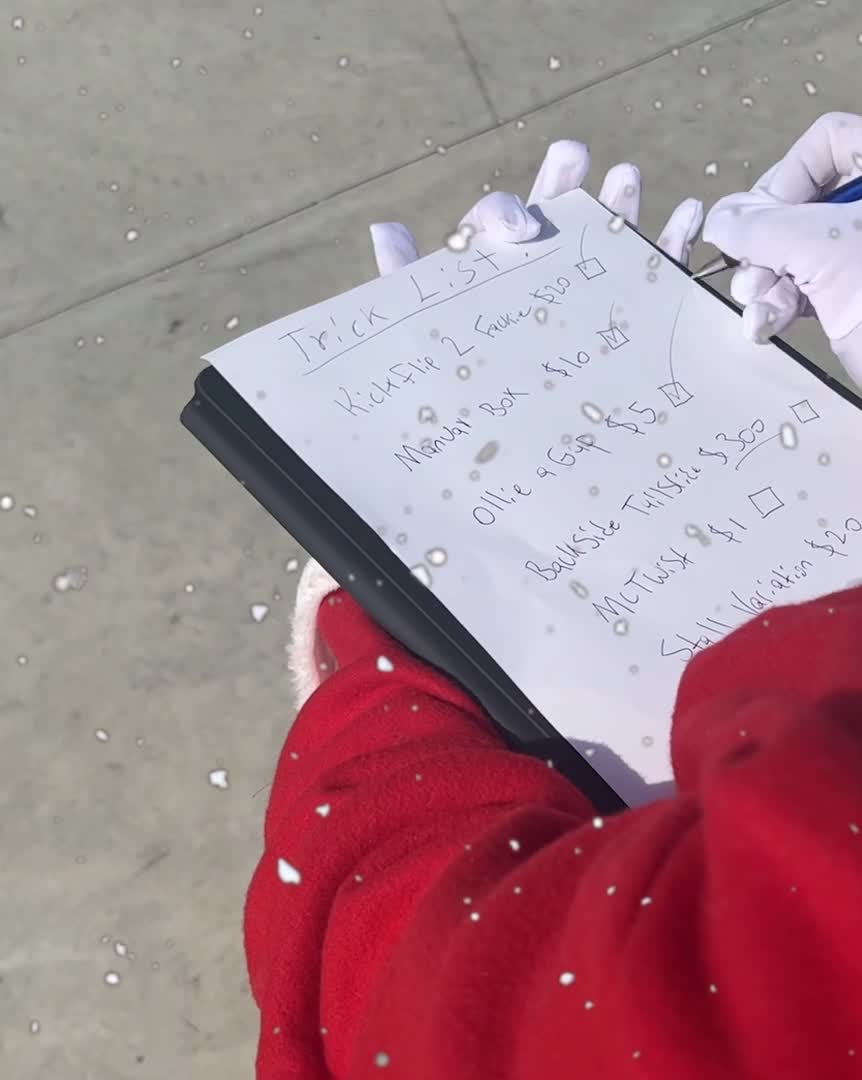 Trick List:
Kickflip 2 Fackie $20
Manuar Box $10
Ollie a Gap $5
BackSide TailSlide $300
McTwist $1
Stall Variation $20